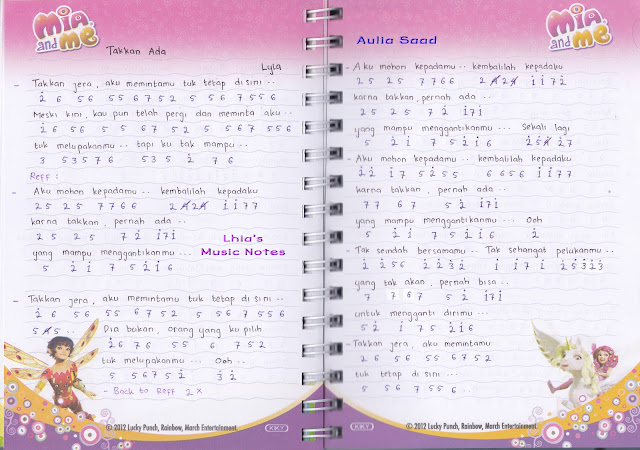 Mia and me
Takkan Ada
Lyla
- Takkan jera, aku memintamu tuk tetap disini ..
2̇ 6 56 55 6 7 5 2 5 5 6 7 5 5 6
Meski kini, kau pun telah pergi dan meminta aku ..
2̇ 6 56 5 5 6 7 5 2 5 5 6 7 5 5 6
tuk melupakanmu ... tapi ku tak mampu ..
3 5 3 5 7 6 5 3 5 2̇ 7 6
Reff :
- Aku mohon kepadamu .. kembalilah kepadaku
25 25 7 7 6 6 i̇ i̇ 7 7
karna takkan, pernah ada ..
25 25 7 2̇ i̇7i̇
yang mampu menggantikanmu ...
5 2̇ i̇ 7 5 2̇ i̇ 6
Lhia's
Music Notes
- Takkan jera, aku memintamu tuk tetap disini ..
2̇ 6 56 55 6 7 5 2 5 5 6 7 5 5 6
5 5 .. Dia bukan, orang yang ku pilih
2̇ 6 7 6 5 5 6 7 5 2
tuk melupakanmu ... Ooh ..
5 5 6 7 5 2̇ 3̇ 2̇
- Back to Reff 2 x
© 2012 Lucky Punch, Rainbow, March Entertainment.
KKY
Aulia Saad
Mia and me
- Aku mohon kepadamu .. kembalilah kepadaku
25 25 7 7 6 6 i̇ i̇ 7 2̇
karna takkan, pernah ada ..
25 25 7 2̇ i̇7i̇
yang mampu menggantikanmu ... Sekali lagi
5 2̇ i̇ 7 5 2̇ i̇ 6
- Aku mohon kepadamu .. kembalilah kepadaku
2̇ 2̇ i̇ 7 5 2̇ 5 5 6 6 5 6 i̇ i̇ 7 7
karna takkan, pernah ada ..
7 7 6 7 5 2̇ i̇7i̇
yang mampu menggantikanmu ... Ooh
5 2̇ i̇ 7 5 2̇ i̇ 6 2̇
- Tak seindah bersamamu .. Tak sehangat pelukanmu ..
2̇ 2̇ 5 6 2̇ 2̇ 3̇ 2̇ i̇ i̇ 7 i̇ 2̇ 5 3̇ 2̇ 3̇
yang tak akan, pernah bisa ..
7 7 6 7 5 2̇ i̇7i̇
untuk mengganti dirimu ...
5 2̇ i̇ 7 5 2̇ i̇ 6
- Takkan jera, aku memintamu
2 6 5 6 5 5 6 7 5 2
tuk tetap disini ...
5 5 6 7 5 5 6 ..
© 2012 Lucky Punch, Rainbow, March Entertainment.
KKY